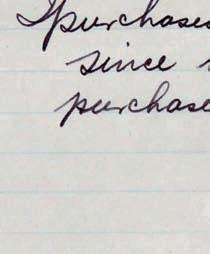 purchases
since
purchase